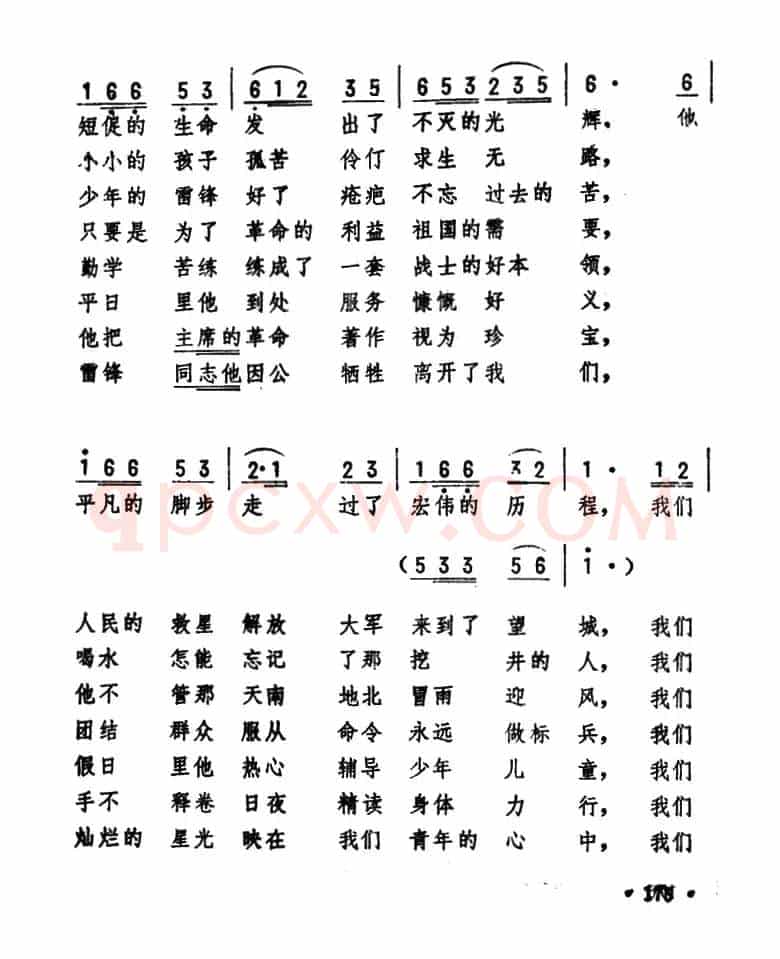 1 6 6 5 3 | 6 1 2 3 5 | 6 5 3 2 3 5 | 6 · 6 |
短促的 生命 发 出了 不灭的光 辉。 他
小小的 孩子 孤苦 伶仃 求生 无 路,
少年的 雷锋 好了 疮疤 不忘 过去的 苦,
只要是 为了 革命的 利益 祖国的需 要,
勤学 苦练 练成了 一套 战士的好本 领,
平日 里他 到处 服务 慷慨 好 义,
他把 主席的革命 著作 视为 珍 宝,
雷锋 同志他因公 牺牲 离开了我 们,
1 6 6 5 3 | 2·1 2 3 | 1 6 6 3 2 | 1 · 1 2 |
平凡的 脚步 走 过了 宏伟的 历 程, 我们
qpcxw.COM
(5 3 3 5 6 | 1 ·)
人民的 救星 解放 大军 来到了 望 城, 我们
喝水 怎能 忘记 了那 挖 井的 人, 我们
他不 管那 天南 地北 冒雨 迎 风, 我们
团结 群众 服从 命令 永远 做标 兵, 我们
假日 里他 热心 辅导 少年 儿 童, 我们
手不 释卷 日夜 精读 身体 力 行, 我们
灿烂的 星光 映在 我们 青年的 心 中, 我们